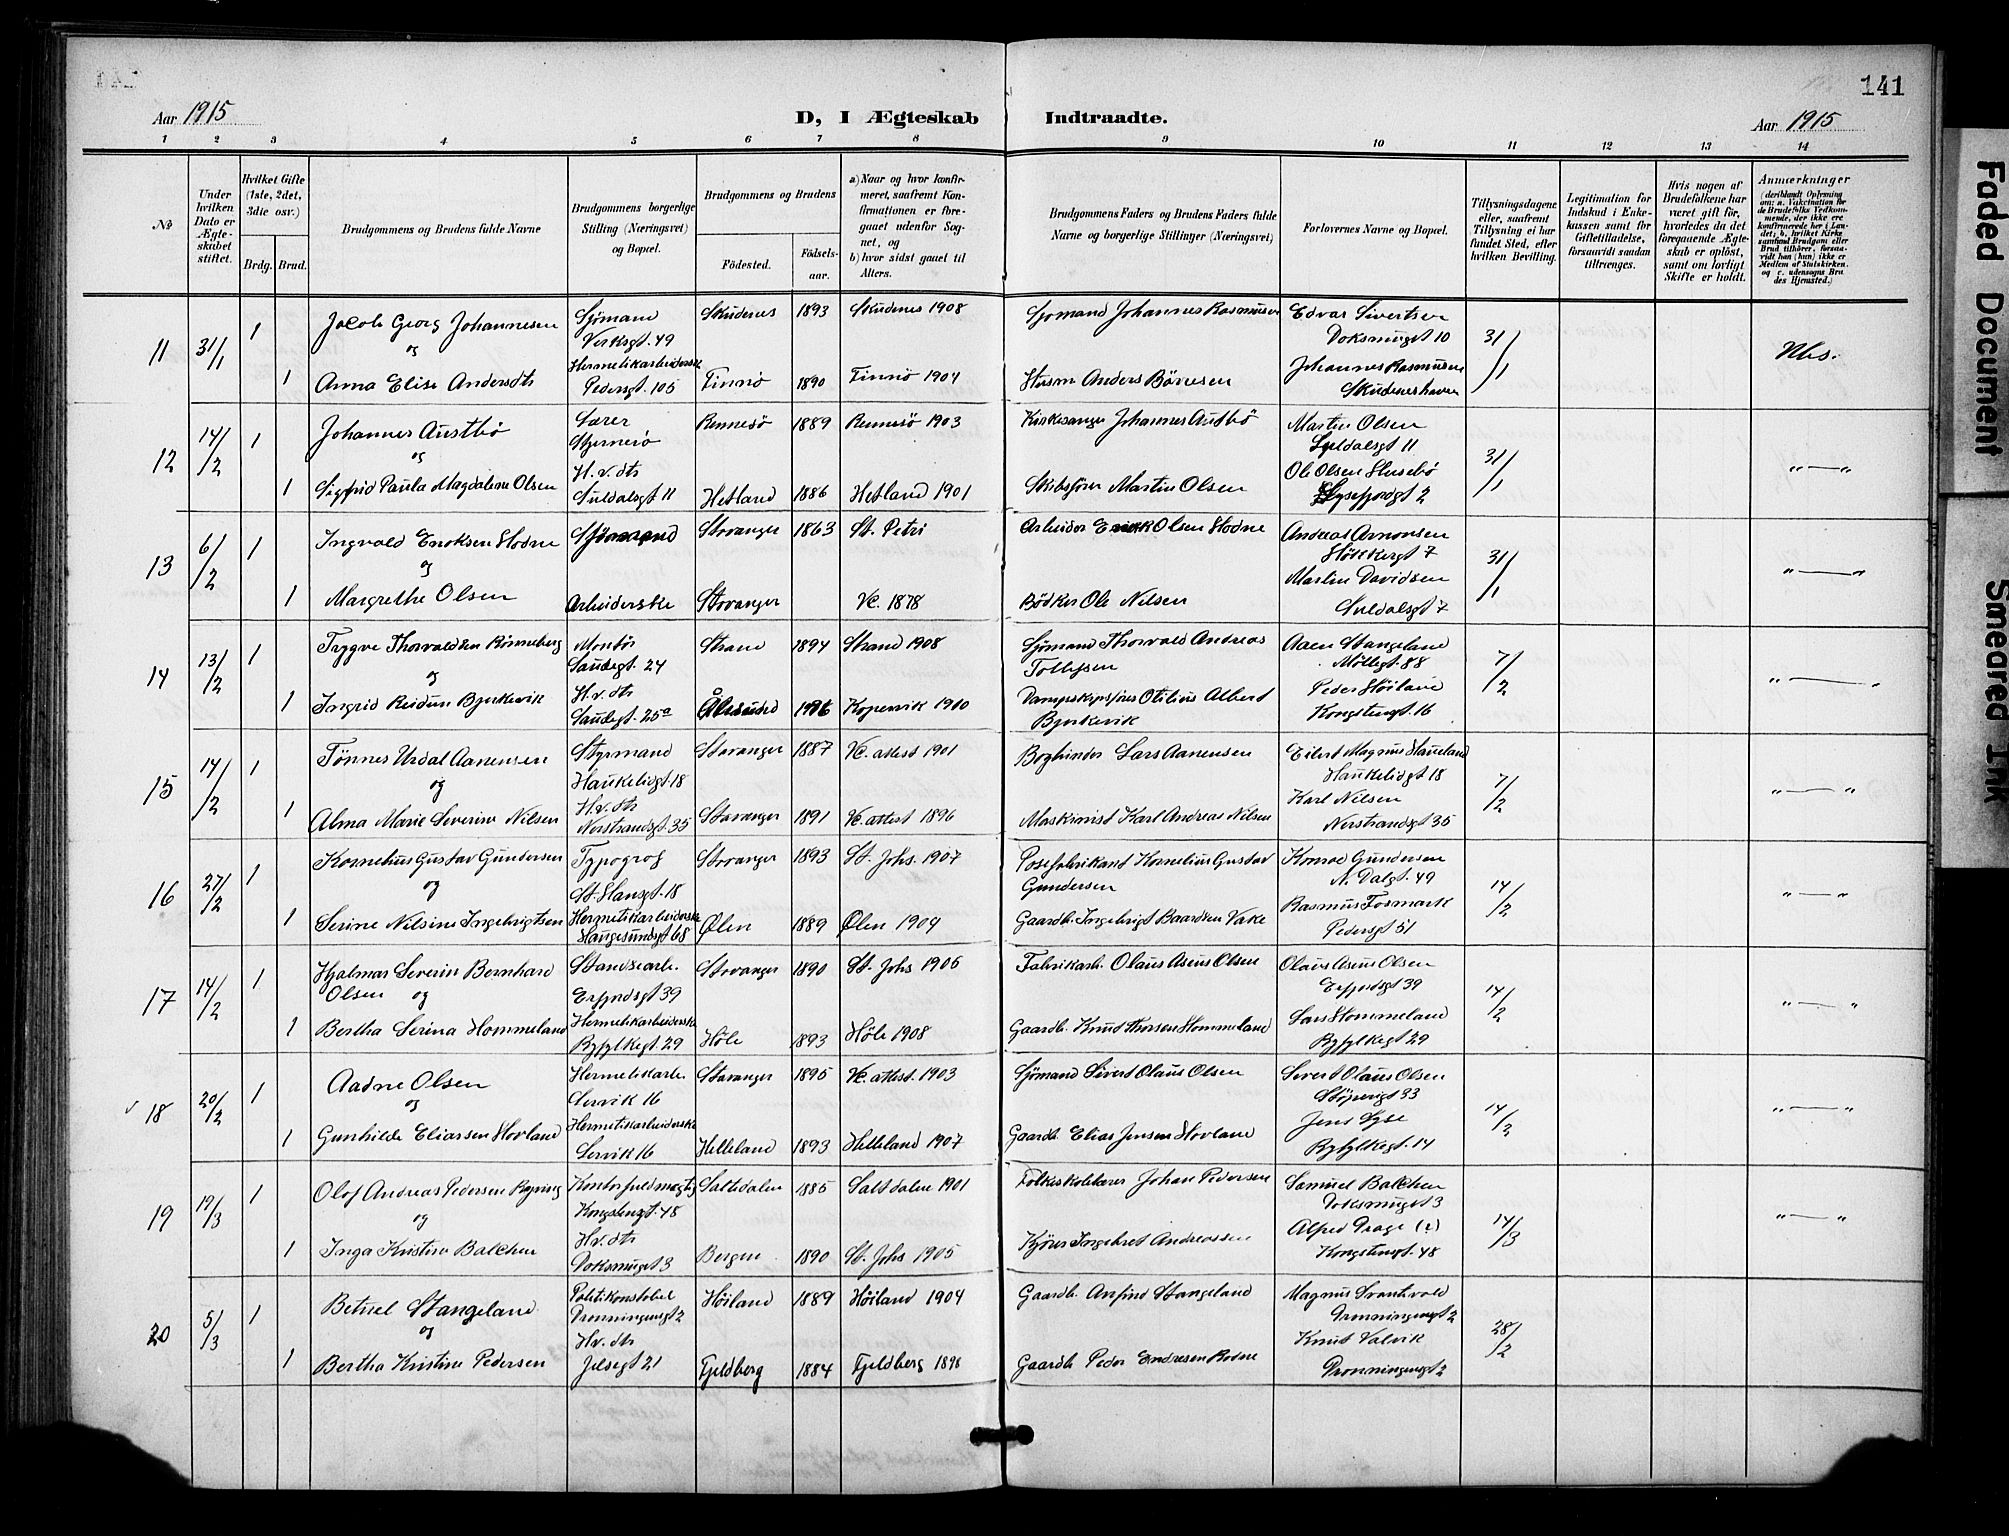 141
Aar 1915
D, I Ægteskab Indtraadte.
Aar 1915
1 2 3 4 5 6 7 8 9 10 11 12 13 14
№
Under hvilken Dato er Ægteskabet stiftet.
Hvilket Gifte (1ste, 2det, 3die osv.)
Brdg. Brud.
Brudgommens og Brudens fulde Navne
Brudgommens borgerlige Stilling (Næringsvei) og Bopæl.
Brudgommens og Brudens
Fødested.
Fødselsaar.
a) Naar og hvor konfirmeret, saafremt Konfirmationen er foregaaet udenfor Sognet, og
b) hvor sidst gaaet til Alters.
Brudgommens Faders og Brudens Faders fulde Navne og borgerlige Stillinger (Næringsvei)
Forlovernes Navne og Bopæl.
Tillysningsdagene eller, saafremt Tillysning ei har fundet Sted, efter hvilken Bevilling.
Legitimation for Indskud i Enkekassen samt for Giftetilladelse, forsaavidt saadan tiltrænges.
Hvis nogen af Brudefolkene har været gift før, hvorledes da det foregaaende Ægteskab er opløst, samt om lovligt Skifte er holdt.
Anmærkninger
(deriblandt Oplysning om: a. Vakcination for de Brudefolks Vedkommende, der ikke ere konfirmerede her i Landet; b. hvilket Kirkesamfund Brudgom eller Brud tilhører, forsaavidt han (hun) ikke er Medlem af Statskirken, og c. udensogns Brudes Hjemsted.)
11 31/1 1 Jacob Georg Johannesen Sjömand Skudenes 1893 Skudenes 1908 Sjomand Johannes Rasmusen Edvar Sivertsen 31/1
og Verksgt. 49 Doksmuget 10 Nhs.
1 Anna Elise Andersdtr Hermetikarbeiderske Finnö 1890 Finnö 1904 Husm Anders Börresen Johannes Rasmusen
Pedersgt. 105 Skudeneshavn
12 14/2 1 Johannes Austbö Lærer Rennesö 1889 Rennesö 1903 Kirkesanger Johannes Austbö Martin Olsen 31/1
og Stjernerö Suldalsgt 11
1 Sigfrid Paula Magdalene Olsen H.v. dtr Hetland 1886 Hetland 1901 Skibsförer Martin Olsen Ole Olsen Husebö "—"
Suldalsgt 11 Lysefjordgt 2
13 6/2 1 Ingvald Enoksen Hodne Sjömand Stavanger 1863 St. Petri Arbeider Enok Olsen Hodne Andreas Arnonsen 31/1
og 7
1 Margrethe Olsen Arbeiderske Stavanger Vc. 1878 Bödker Ole Nilsen Martin Davidsen "—"
Suldalsgt 7
14 13/2 1 Trygve Thorvaldsen Rönneberg Montör Strand 1894 Strand 1908 Sjömand Thorvald Andreas Tollefsen Aaen Stangeland 7/2
og Saudegt. 24 Möllegt. 88
1 Ingrid Reidun Bjerkevik H.v. dtr Ålesund Kopervik 1910 Dampskipsförer Otilius Albert Bjerkevik Peder Höiland "—"
Saudegt. 25a Kongstengt. 16
15 14/2 1 Tönnes Urdal Aanensen Styrmand Stavanger 1887 Vc. attest 1901 Bogbinder Lars Aanensen Eilert Magnus Haueland 7/2
og Haukeligt 18 Haukelidgt 18
1 Alma Marie Severine Nilsen H.v. dtr Stavanger 1891 Vc. attest 1896 Maskinist Karl Andreas Nilsen Karl Nilsen "—"
Nerstrandsgt. 35 Nerstrandsgt 35
16 27/2 1 Kornelius Gustav Gundersen Typograf Stavanger 1893 St. Johs. 1907 Posefabrikant Kornelius Gustav Gundersen Konrad Gundersen 14/2
og St. Hansgt. 18 N. Dalgt. 49
1 Serine Nilsine Ingebrigtsen Hermetikarbeiderske Ølen 1889 Ølen 1904 Gaardb. Ingebrigt Baardsen Vake Rasmus Fosmark "—"
Haugesundsgt 68 Pedersgt 51
17 14/2 1 Hjalmar Severin Bernhard Olsen Standsearb. Stavanger 1890 St. Johs 1906 Fabrikarb. Olaus Aseus Olsen Olaus Aseus Olsen 14/2
og Erfjordsgt 39 Erfjordsgt 39
1 Bertha Serina Hommeland Hermetikarbeiderske Höle 1893 Höle 1908 Gaardb. Knut Thorsen Hommeland Lars Hommeland "—"
Ryfylkegt. 29 Ryfylkegt 29
18 20/2 1 Aadne Olsen Hermetikarb. Stavanger 1895 Vc. attest. 1903 Sjömand Sivert Olaus Olsen Sivert Olaus Olsen 14/2
og Lervik 16 33
1 Gunhilde Eliassen Hovland Hermetikarbeiderske Helleland 1893 Helleland 1907 Gaardb. Elias Jensen Hovland Jens Lyse "—"
Lervik 16 Ryfylkegt. 14
19 19/3 1 Olof Andreas Pedersen Kontorfuldmægtig Saltdalen 1885 Saltdalen 1901 Folkeskolelærer Johan Pedersen Samuel Balchen 14/3
og Kongstengt. 48 Doksmuget 3
1 Inga Kristine Balchen H.v. dtr Bergen 1890 St. Johs 1905 Kjörer Ingebret Andreassen Alfred Drage (e) "—"
Doksmuget 3 Kongstengt. 48
20 5/3 1 Betuel Stangeland Politikonstabel Höiland 1889 Höiland 1904 Gaardb. Anfind Stangeland Magnus Svanhvald 28/2
og Dronningensgt 2 Dronningensgt 2
1 Bertha Kristine Pedersen Hv. dtr Fjeldberg 1884 Fjeldberg 1898 Gaardb. Peder Endresen Knut Valvik
Jelsegt 21 Dronningensgt 2
Faded Document
Smeared Ink